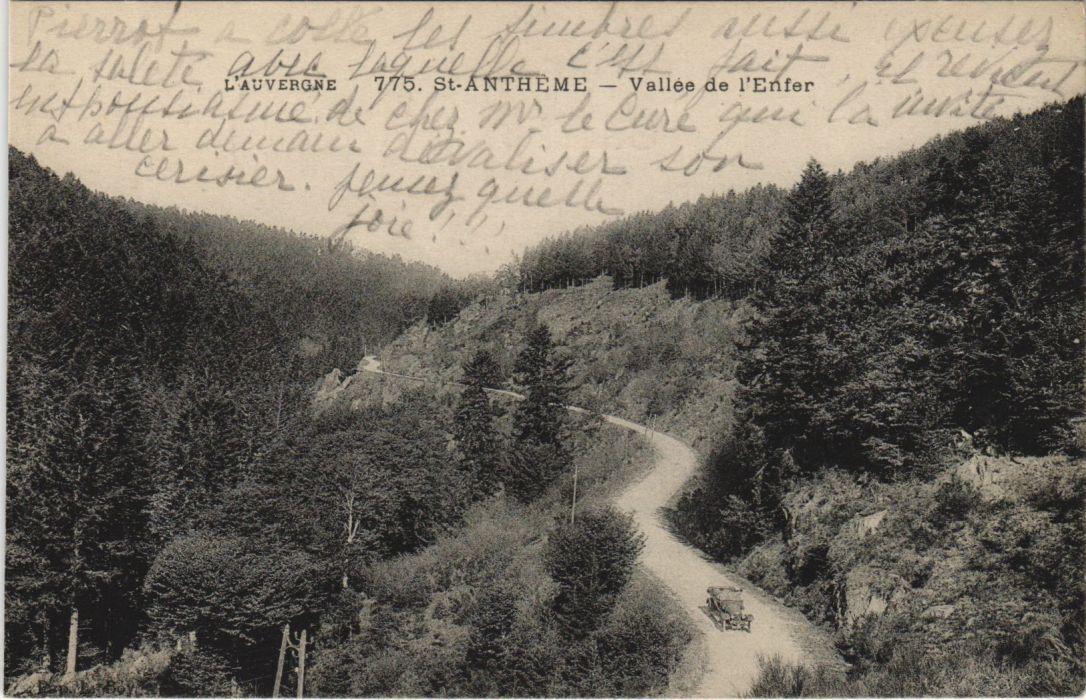 Pierrot a collé les timbres aussi excuser
sa saleté avec laquelle c'est fait, il revient
L'AUVERGNE 775. St-ANTHÈME — Vallée de l'Enfer
enthousiasmé de chez Mr le Curé qui l'a invité
a aller demain dévaliser son
cerisier. pensez quelle
joie!!!